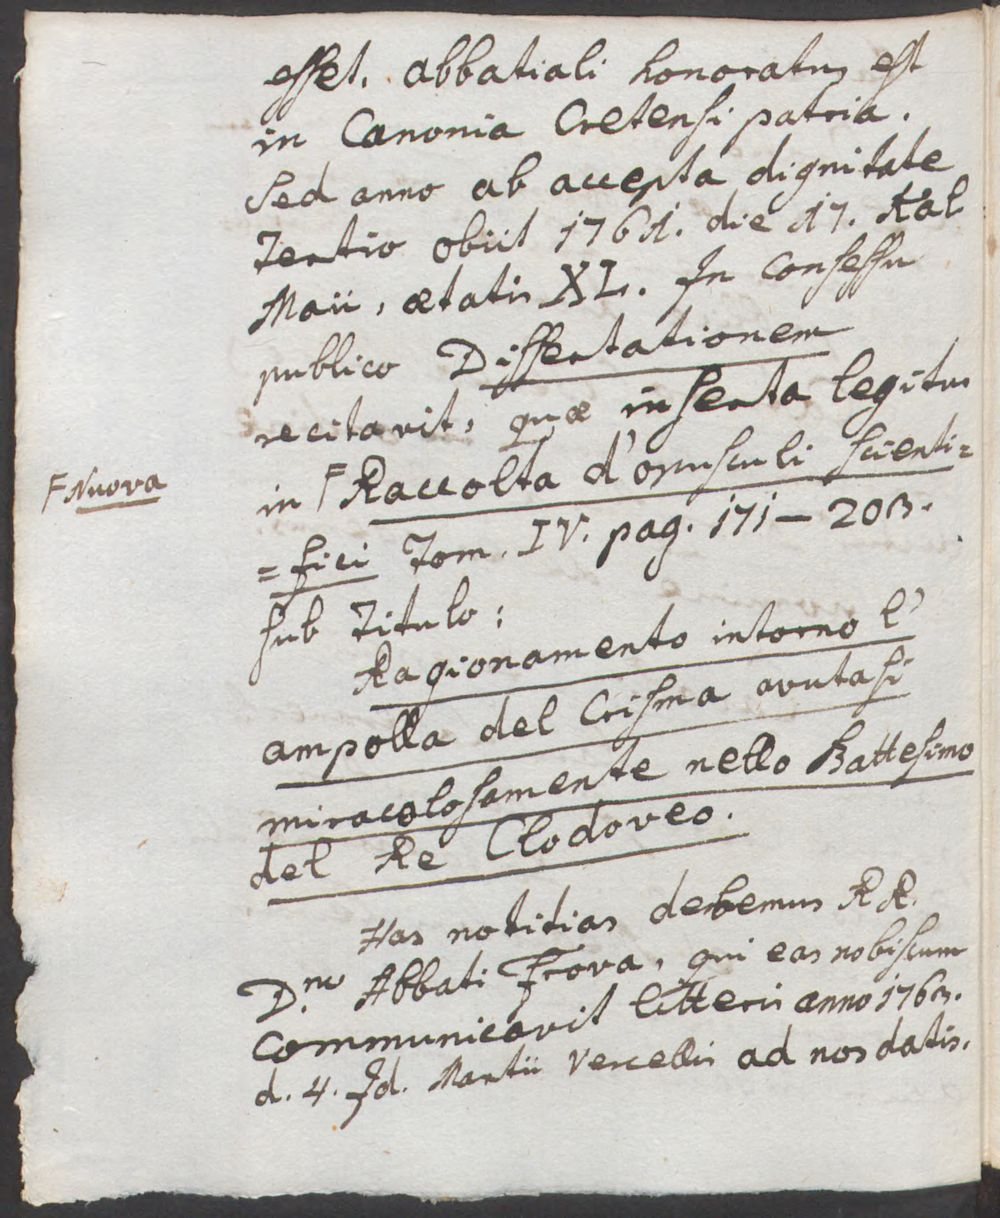 esset. abbatiali honoratus est
in Canonia Cretensi patria.
Sed anno ab accepta dignitate
tertio obiit 1761. die 17. Kal
Maii, ætatis XL. In consessu
publico Dissertationem
recitavit, quæ inserta legitur
in Γ Raccolta d'opusculi scienti=
Γ Nuova
=fici Tom. IV. pag. 171 — 203.
sub titulo:
Ragionamento intorno l'
ampolla del Crisma avutasi
miracolosamente nello Battesimo
del Re Clodoveo.
Has notitias debemus RR.
D.no Abbati Frova, qui eas nobiscum
communicavit litteris anno 1763.
d. 4. Id. Martii Vercellis ad nos datis.